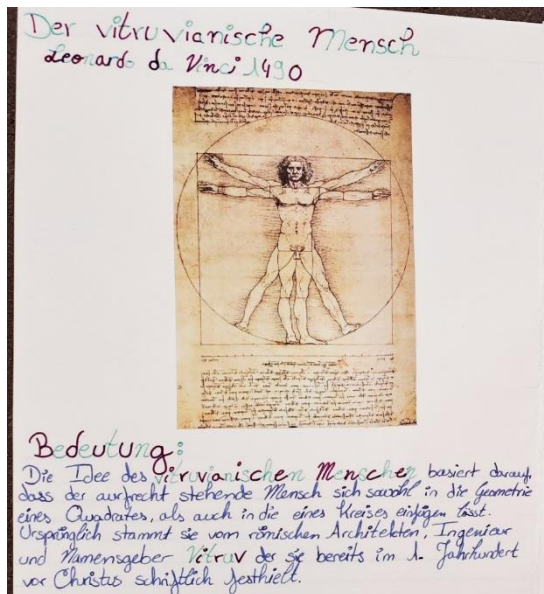 Der vitruvianische Mensch
Leonardo da Vinci 1490
Bedeutung:
Die Idee des vitruvianischen Menschen basiert darauf,
dass der aufrecht stehende Mensch sich sowohl in die Geometrie
eines Quadrates, als auch in die eines Kreises einfügen lässt.
Ursprünglich stammt sie vom römischen Architekten, Ingenieur
und Namensgeber Vitruv der sie bereits im 1. Jahrhundert
vor Christus schriftlich festhielt.